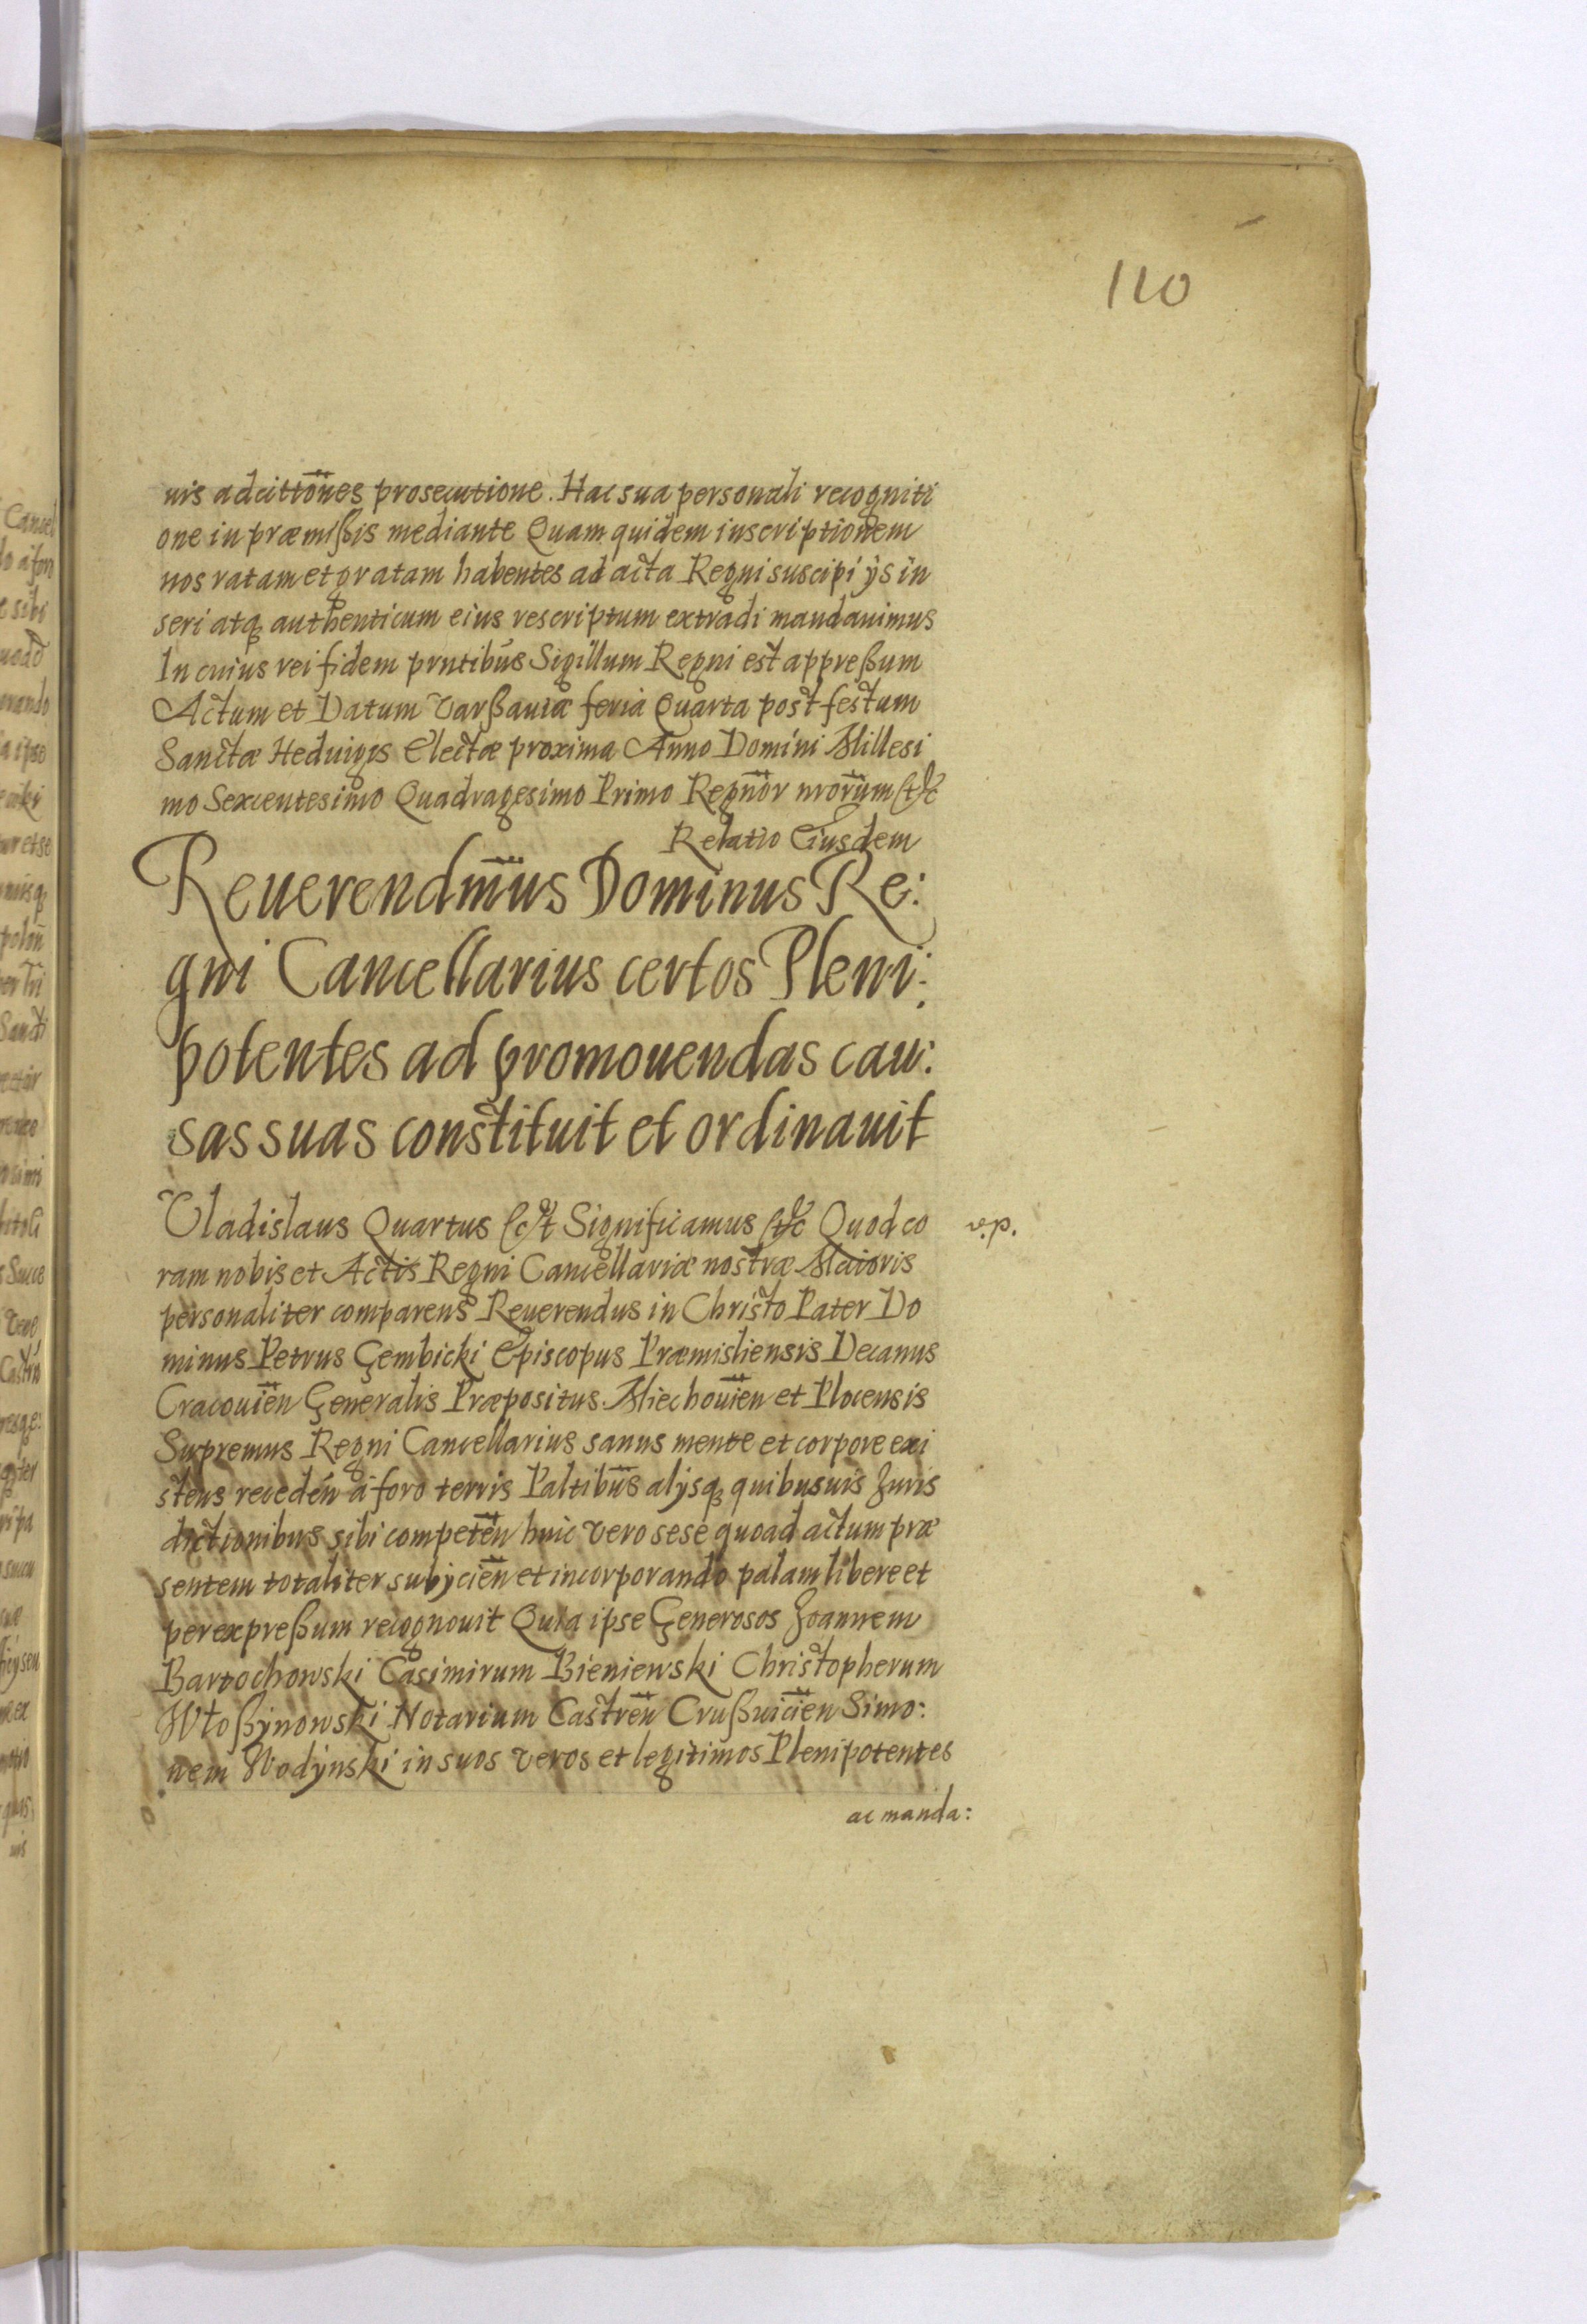 110
nis adcittōnes prosecutione. Hac sua personali recogniti
one in præmißis mediante Quam quidem inscriptionem
nos ratam et gratam habentes ad acta Regni suscipi ijs in
seri atq authenticum eius rescriptum extradi mandauimus
In cuius rei fidem prntibus Sigillum Regni est appreßum
Actum et Datum Varßauiæ feria Quarta post festum
Sanctæ Heduigis Electæ proxima Anno Domini Millesi
mo Sexcentesimo Quadragesimo Primo Regnor nrorum etc
Relatio Eiusdem
Reuerendmus Dominus Re:
gni Cancellarius certos Pleni:
potentes ad promouendas cau:
sas suas constituit et ordinauit
Vladislaus Quartus etc Significamus etc Quod co
v.p.
ram nobis et Actis Regni Cancellariæ nostræ Maioris
personaliter comparens Reuerendus in Christo Pater Do
minus Petrus Gembicki Episcopus Præmisliensis Decanus
Cracouien Generalis Præpositus Miechouien et Plocensis
Supremus Regni Cancellarius sanus mente et corpore exi
stens receden a foro terris Paltibus alijsq quibusuis Iuris
dictionibus sibi competen huic vero sese quoad actum præ
sentem totaliter subijcien et incorporando palam libere et
per expreßum recognouit Quia ipse Generosos Joannem
Bartochowski Casimirum Bieniewski Christopherum
Włoßynowski Notarium Castren Crußuicien Simo:
nem Wodynski in suos veros et legitimos Plenipotentes
ac manda: